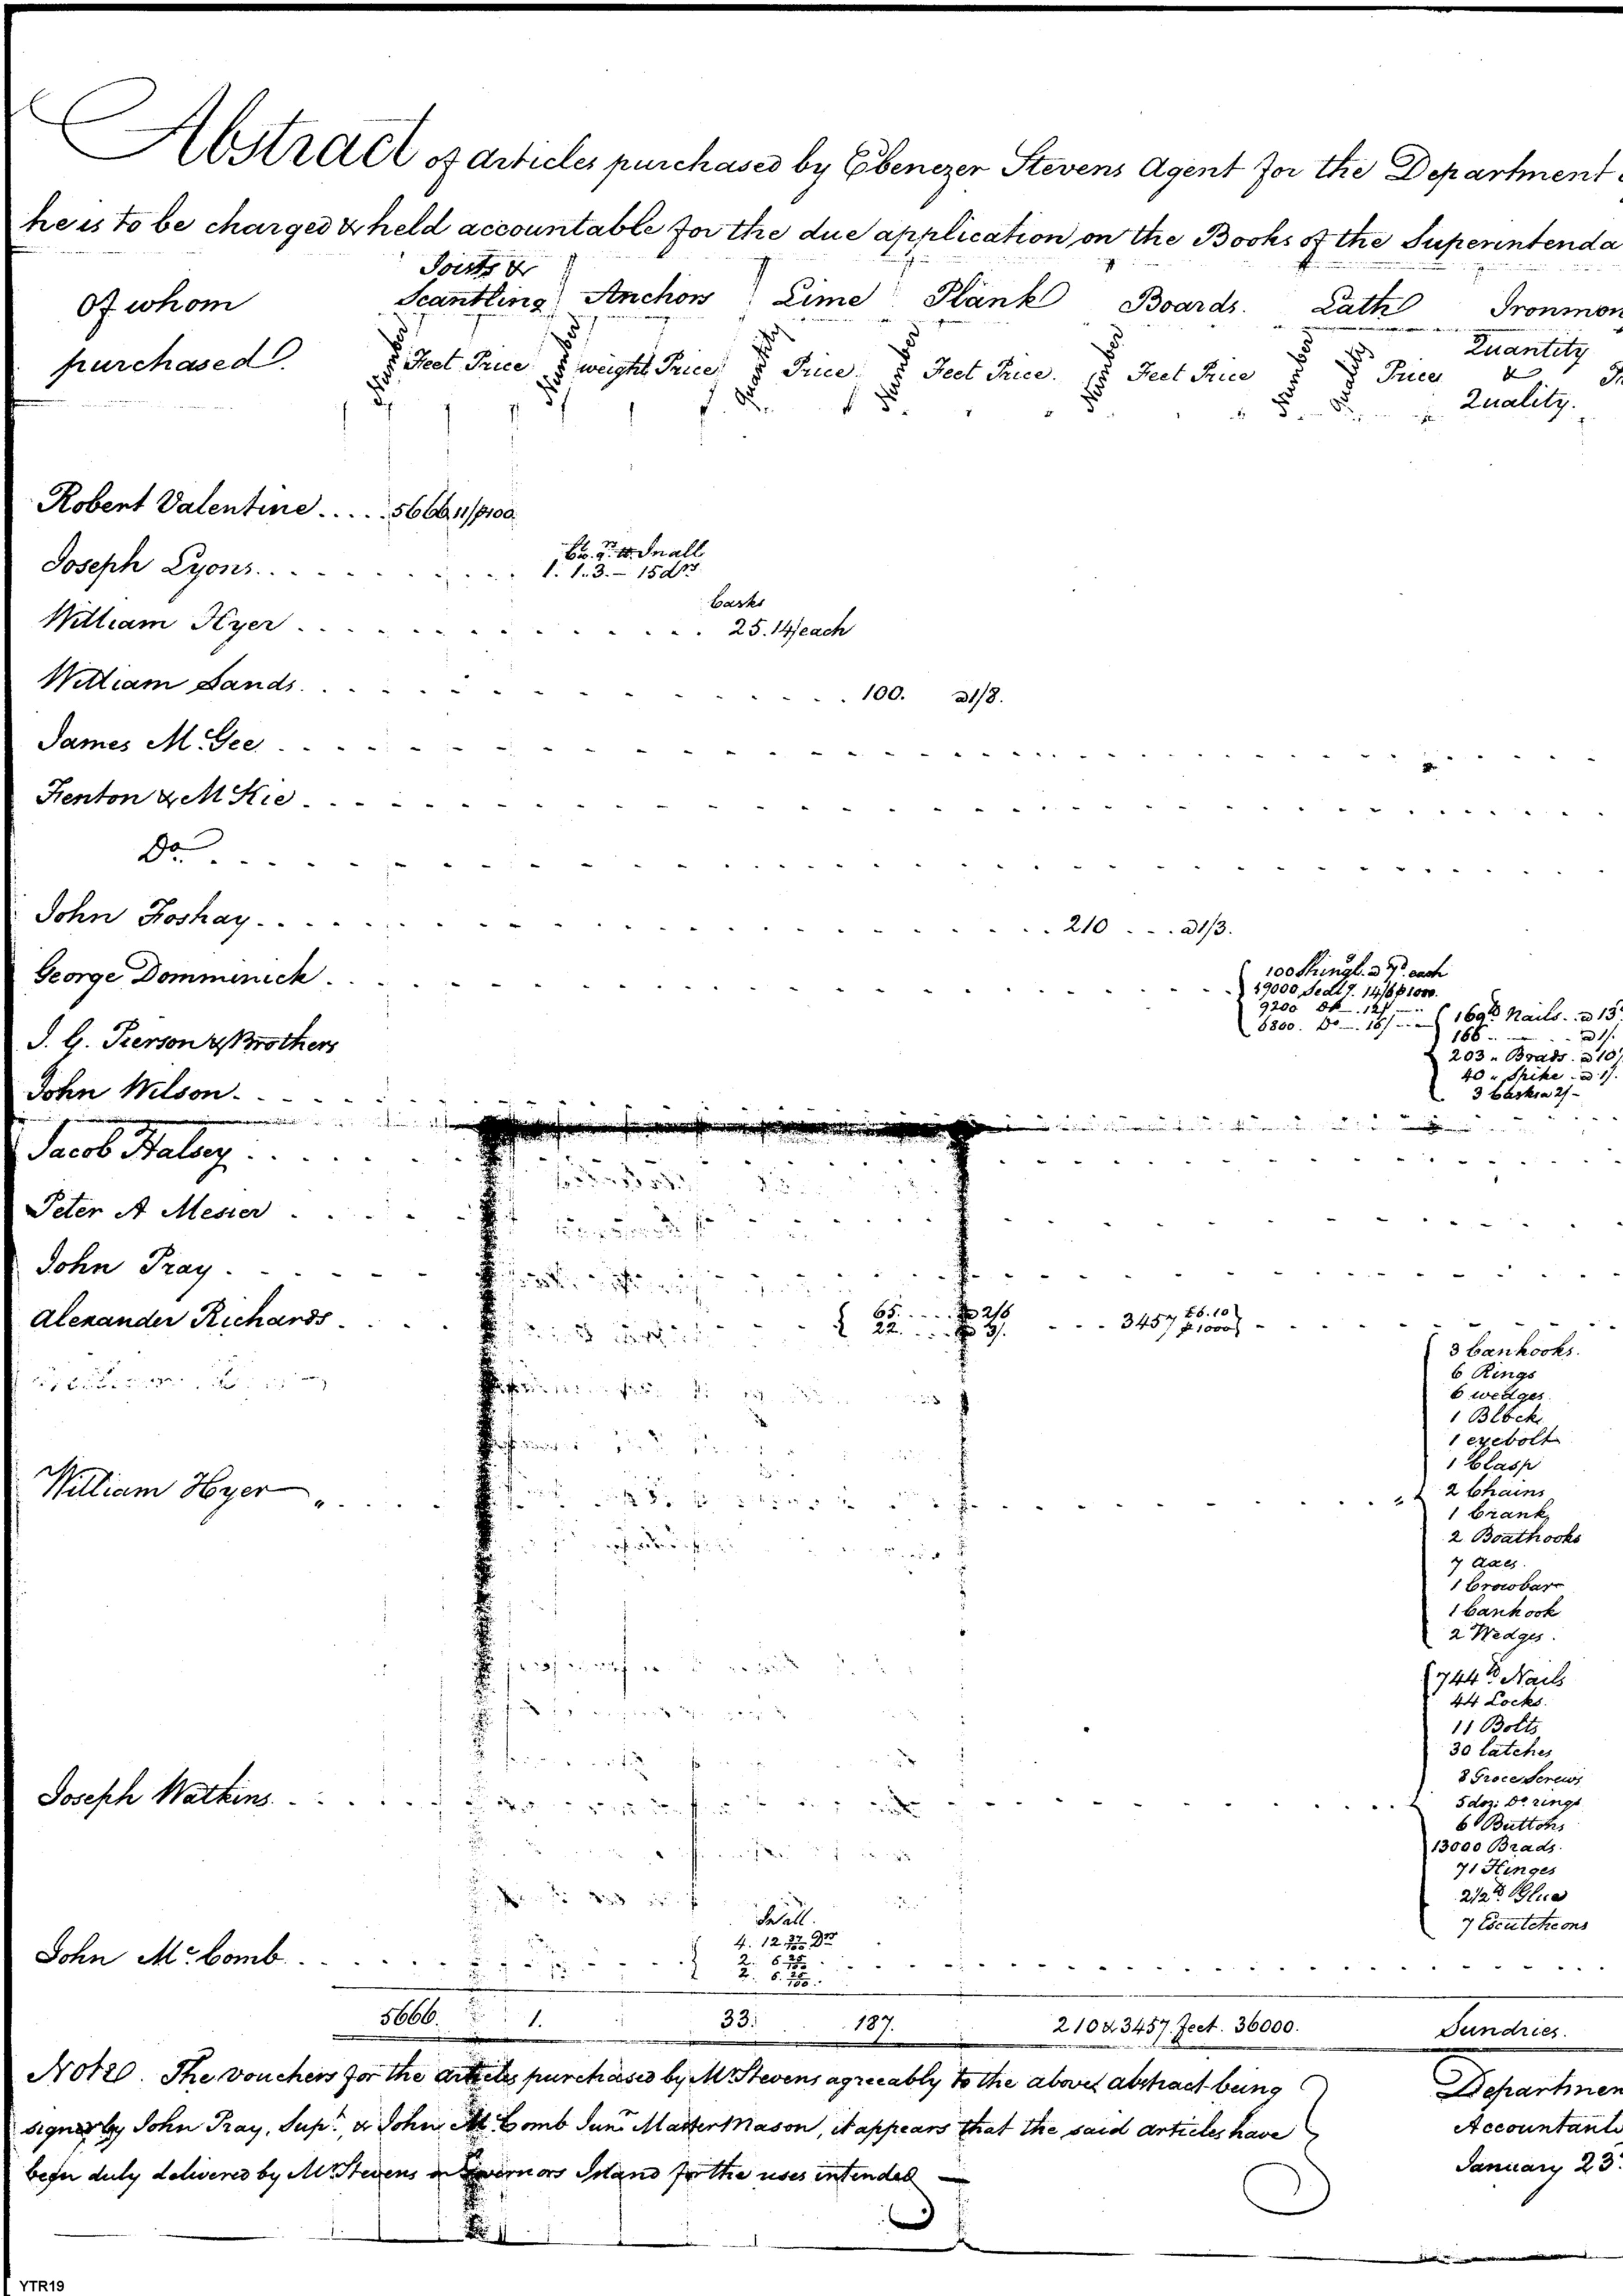 Abstract of articles purchased by Ebenezer Stevens Agent for the Department
he is to be charged & held accountable for the due application on the Books of the Superintenda
Of whom purchased
Joists & Scantling Anchors Lime Plank Boards. Lath Ironmon
Number Feet Price Number weight Price Quantity Price Number Feet Price. Number Feet Price Number Quality Price Quantity & Quality.
Robert Valentine..... 5666 11/p100
Cw. q. lb. Inall
Joseph Lyons... 1. 1.3. – 15drs
Casks
William Hyer... 25. 14/each
William Sands... 100. a1/8.
James M. Gee
Fenton & M Kie
Do
John Foshay... 210 ... a1/3.
George Domminick.
100 Shingl. a 7d. each
19000 14/6 p1000.
9200 Do 12/
6800. Do 16/
J. G. Pierson & Brothers
169lb Nails. a 13
166 a 1/.
203 " Brads. a 10
40 " Spike a 1/.
3 Casks a 2/-
John Wilson
Jacob Halsey
Peter A Mesier
John Pray
Alexander Richards. 65. a 2/6 3457 £6.10 p 1000
22. a 3/.
3 Canhooks.
6 Rings
6 wedges
1 Block
1 eyebolt
1 Clasp
William Hyer 2 Chains
1 Crank
2 Boathooks
7 Axes.
1 Crowbar
1 Canhook
2 Wedges.
744lb Nails
44 Locks.
11 Bolts
30 latches
8 Groce Screws
Joseph Watkins 5 doz: Do rings
6 Buttons
13000 Brads.
71 Hinges
2 1/2lb Glue
7 Escutcheons
Inall.
4. 12 37/100 Drs
John Mc Comb 2. 6. 25/100
2. 6. 25/100.
5666. 1. 33. 187. 210 & 3457. feet. 36000. Sundries.
Note. The vouchers for the articles purchased by Mr Stevens agreeably to the above abstract being
signed by John Pray, Supt., & John Mc Comb Junr Master Mason, it appears that the said articles have
been duly delivered by Mr Stevens on Governors Island for the uses intended
Departmen
Accountant
January 23
YTR19